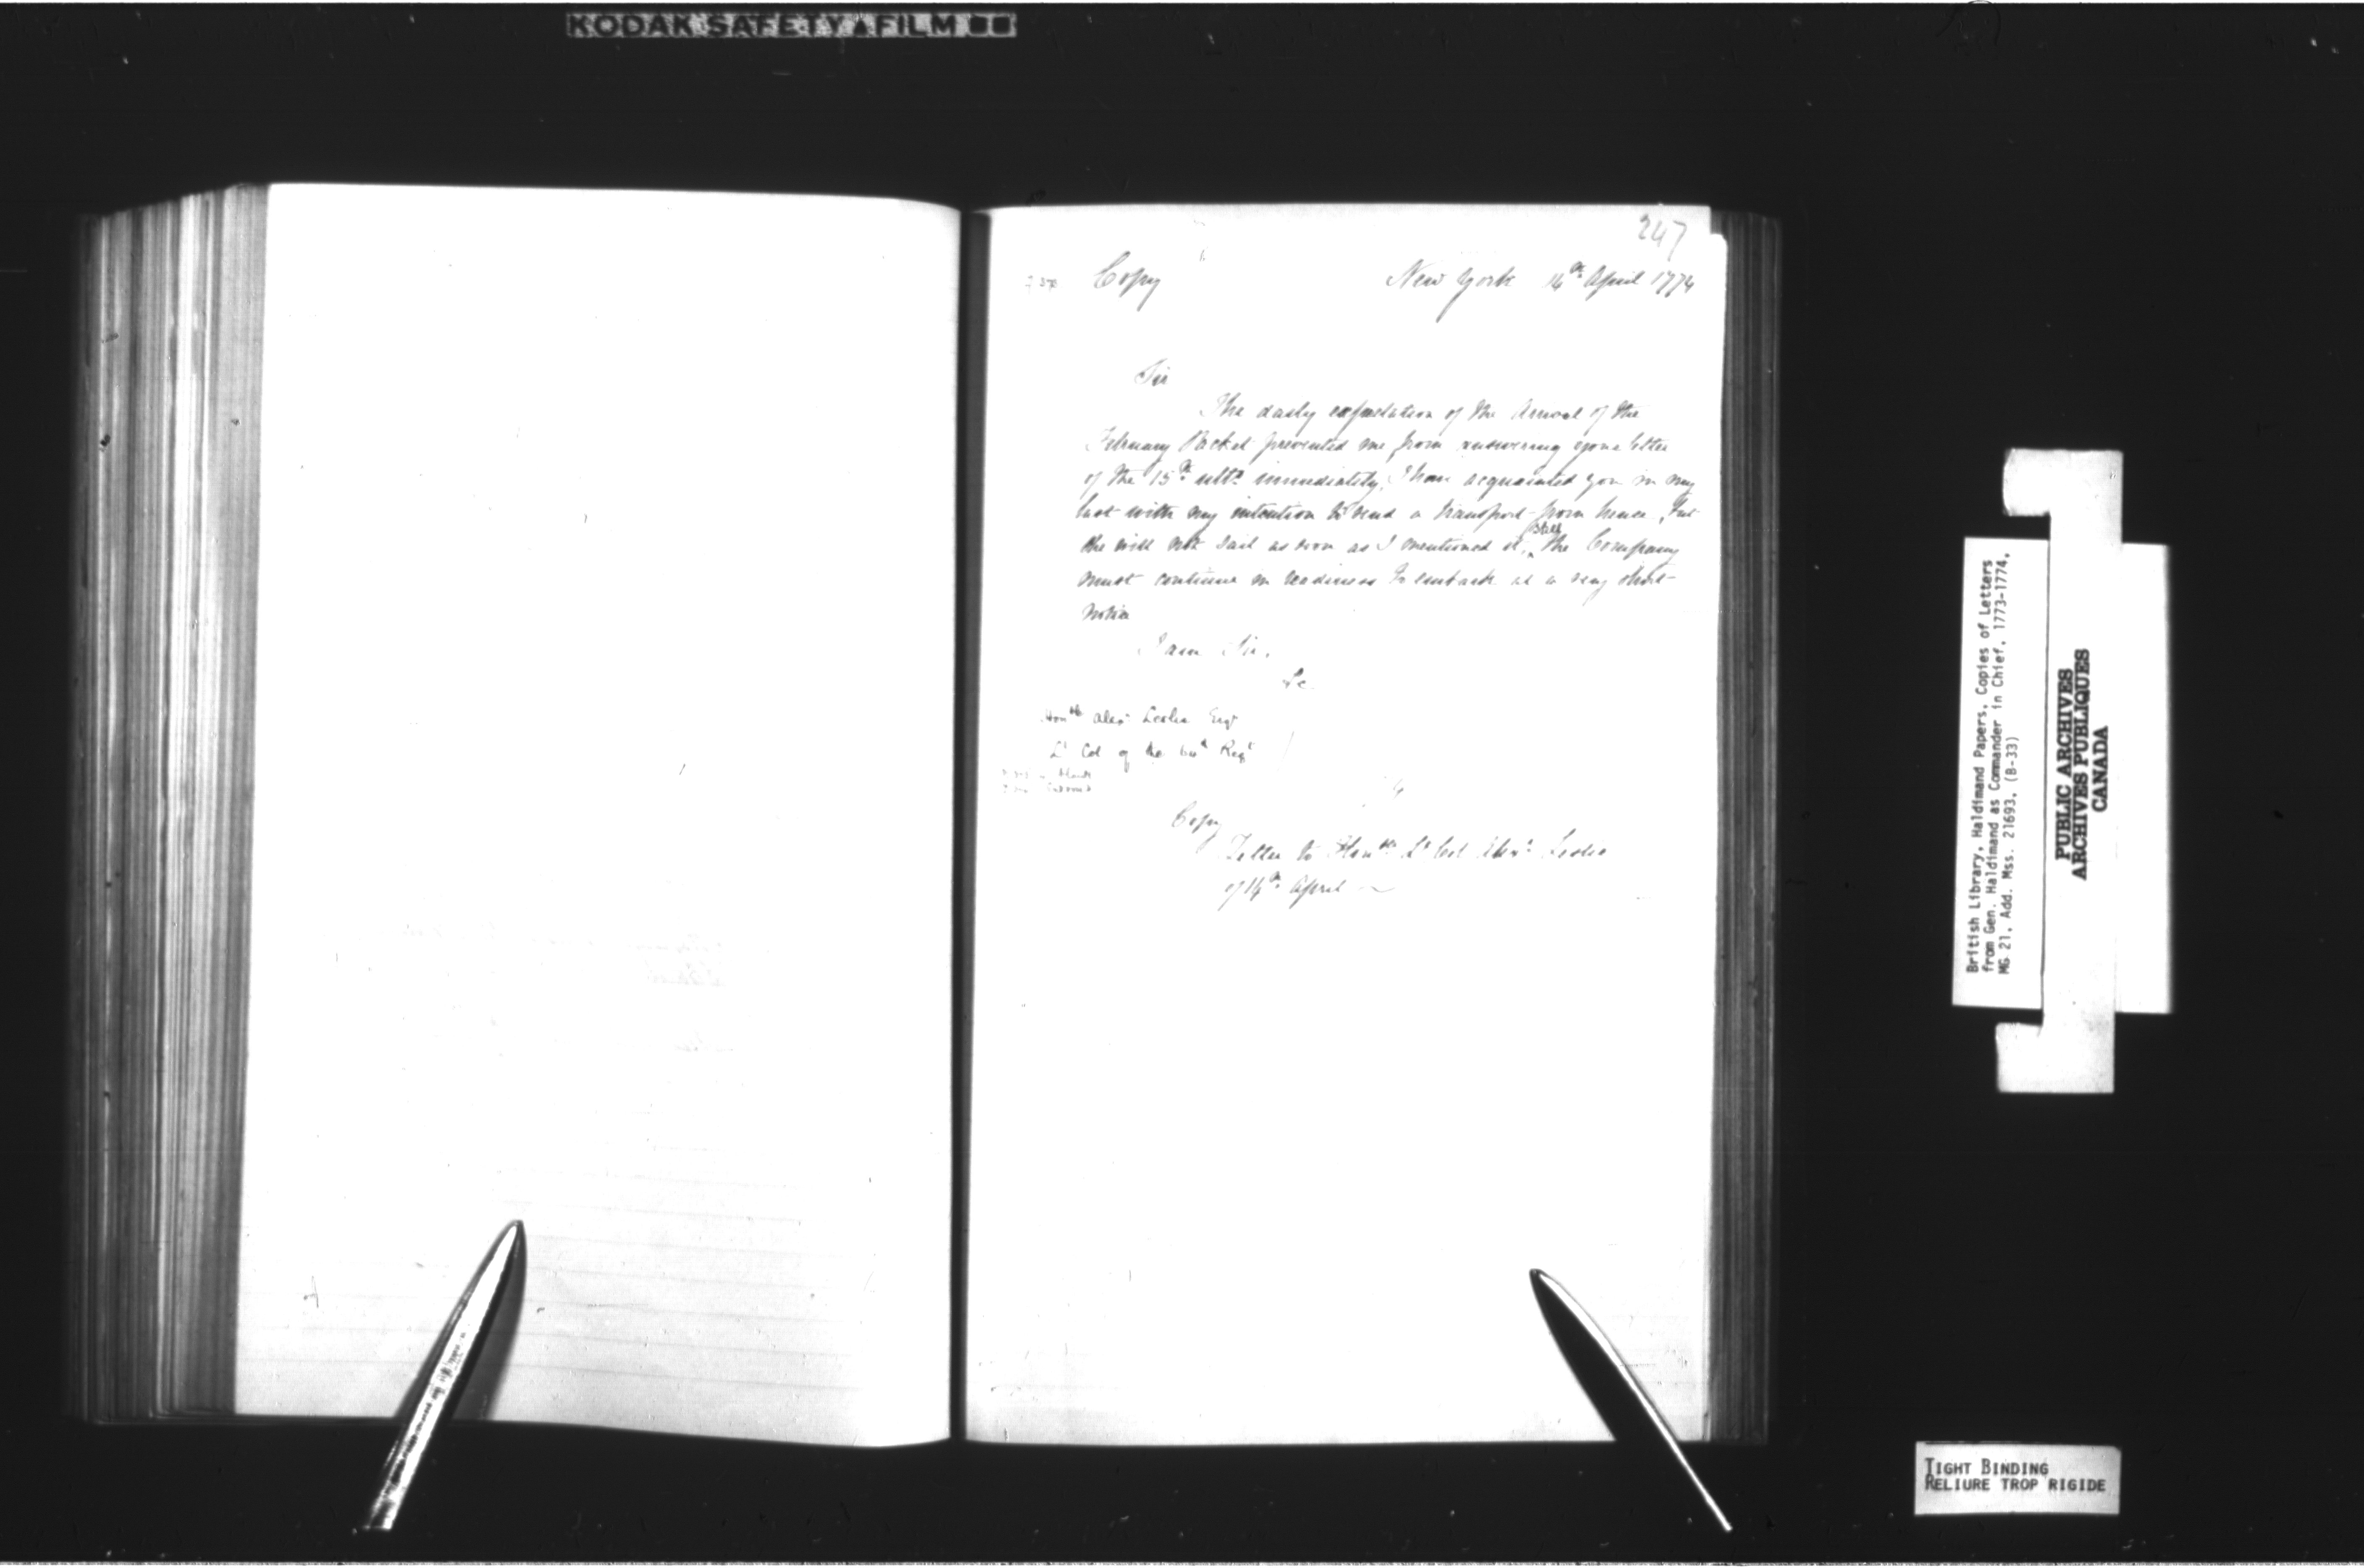 KODAK SAFETY FILM
247
Copy
New York 14th April 1774
Sir
The daily expectation of the Arrival of the
February Packet prevented me from answering your letter
of the 15th ulto immediately, I have acquainted you in my
last with my intention to send a transport from hence, but
she will not sail as soon as I mentioned it, still the Company
must continue in readiness to embark at a very short
notice
I am Sir,
&c
Honble Alexr Leslie Esqr
Lt Col of the 64th Regt
Copy
Letter to Honble Lt Col Alexr Leslie
of 14th April
British Library, Haldimand Papers, Copies of Letters
from Gen. Haldimand as Commander in Chief, 1773-1774,
MG 21, Add. Mss. 21693, (B-33)
PUBLIC ARCHIVES
ARCHIVES PUBLIQUES
CANADA
TIGHT BINDING
RELIURE TROP RIGIDE